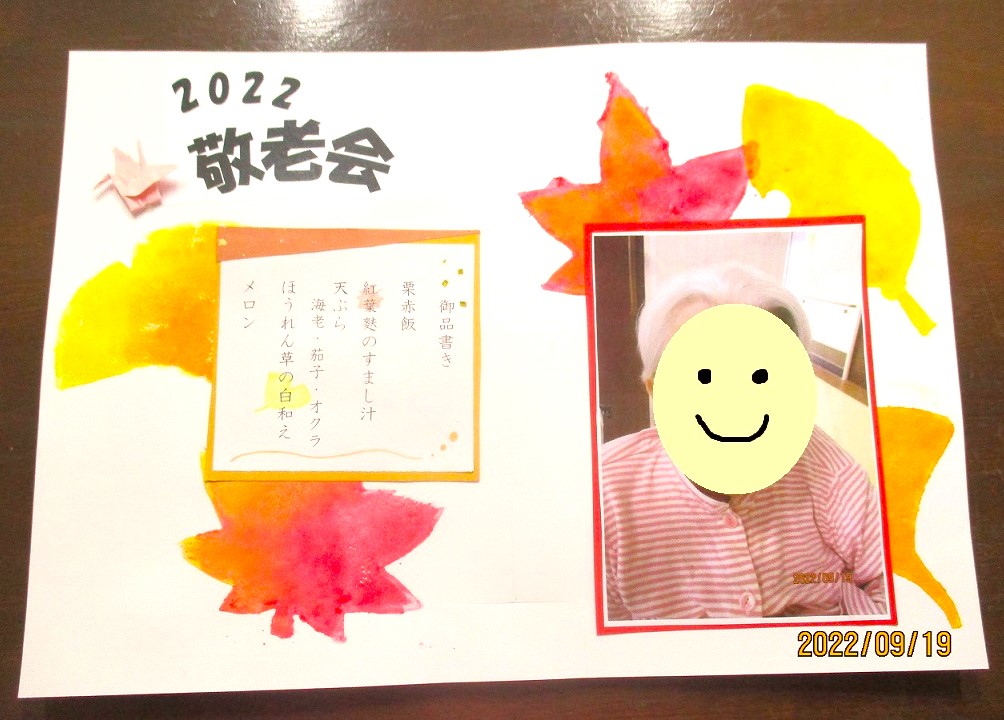 2022
敬老会
御品書き
栗赤飯
紅葉麩のすまし汁
天ぷら
海老・茄子・オクラ
ほうれん草の白和え
メロン
2022/09/19
2022/09/19